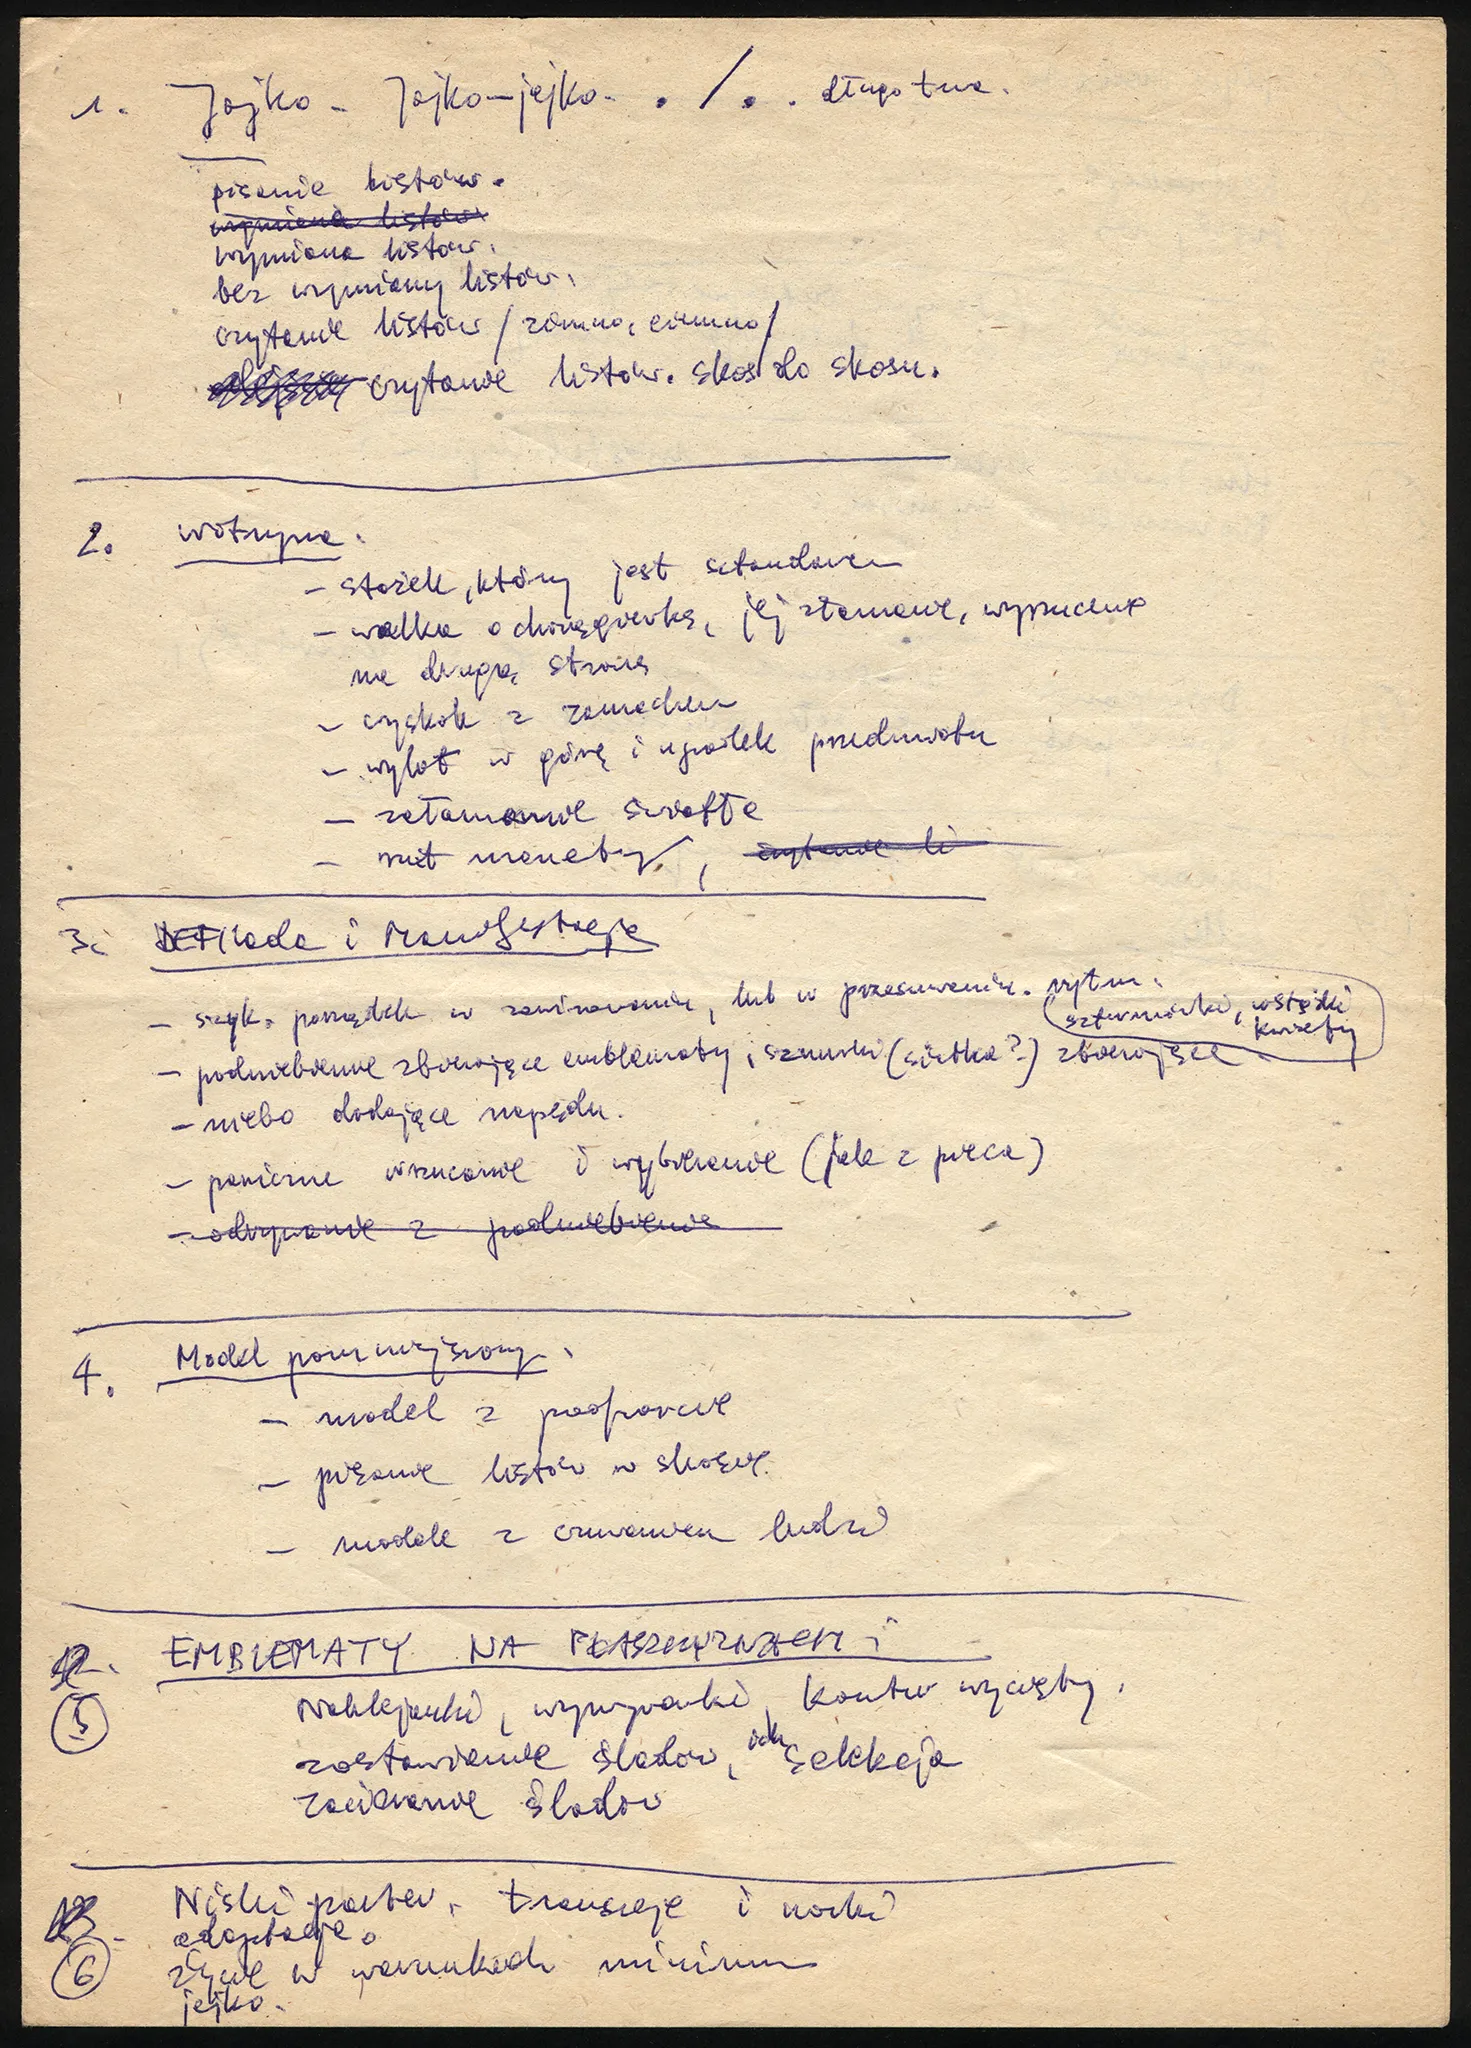 1. Jajko - Jajko-jejko. . / . . długo trwa.
pisanie listów.
wymiana listów
wymiana listów.
bez wymiany listów.
czytanie listów / zimno, ciemno/
czytanie listów. skos do skosu.
2. wotsyna.
- stożek, który jest sztandarem
- walka o chorągiewkę, jej złamanie, wyrzucenie
na drugą stronę
- wyskok z zamachem
- wylot w górę i upadek przedmiotu
- załamanie światła
- rzut monety, czytanie li
3. DEFilada i Manifestacja
- szyk, porządek w zawirowaniu, lub w przesuwaniu. rytm.
szturmówki, wstążki
kwiaty
- podniebienie zbierające emblematy, sznurki (siatka?) zbierające
- niebo dodające napędu.
- paniczne wrzucanie i wybieranie (jak z pieca)
- odrywanie z podniebienia
4. Model pomniejszony.
- model z poprawie
- pisanie listów w skosie.
- model z czuwaniem ludzi
5 EMBLEMATY NA PŁASZCZYZNACH i
Naklejanki, wyrywanki, kontur wycięty.
zostawianie śladów, ich selekcja
zacieranie śladów
6 Niski parter. tranzycje i
adaptacje.
życie w warunkach minimum
jejko.